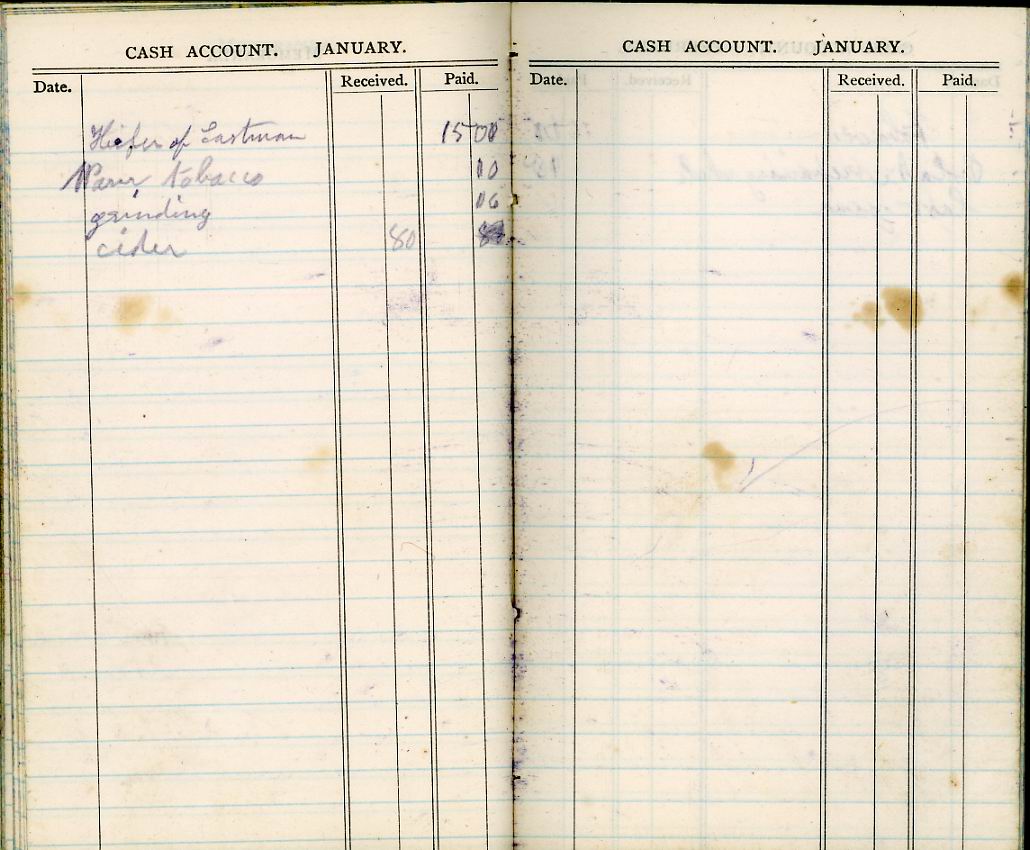 CASH ACCOUNT. JANUARY.
Date. Received. Paid.
Heifer of Eastman 15 00
tobacco 10
grinding 06
cider 80
CASH ACCOUNT. JANUARY.
Date. Received. Paid.